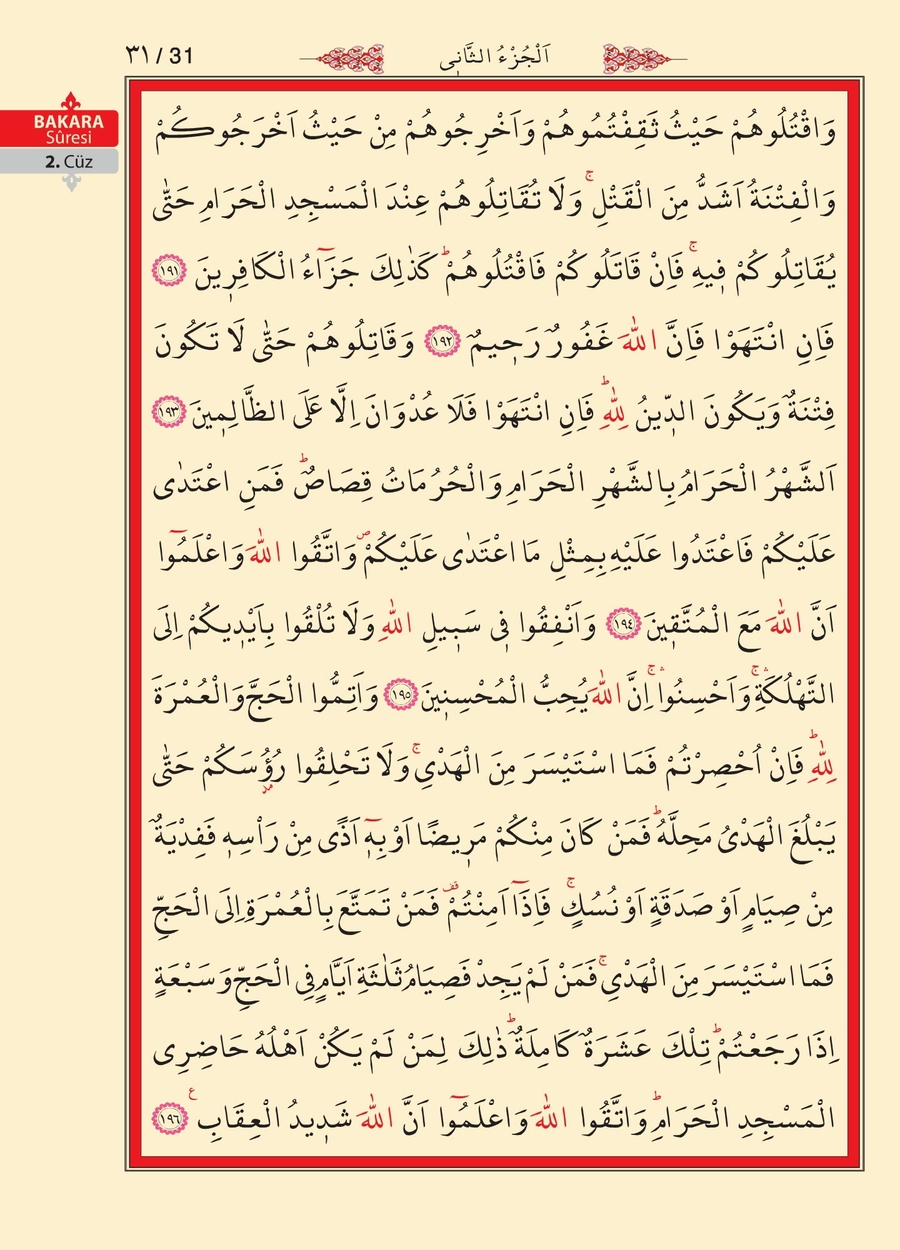 ٣١ / 31
اَلْجُزْءُ الثَّانٖى
BAKARA
Sûresi
2. Cüz
وَاقْتُلُوهُمْ حَيْثُ ثَقِفْتُمُوهُمْ وَاَخْرِجُوهُمْ مِنْ حَيْثُ اَخْرَجُوكُمْ
وَالْفِتْنَةُ اَشَدُّ مِنَ الْقَتْلِۚ وَلَا تُقَاتِلُوهُمْ عِنْدَ الْمَسْجِدِ الْحَرَامِ حَتّٰى
يُقَاتِلُوكُمْ فٖيهِۚ فَاِنْ قَاتَلُوكُمْ فَاقْتُلُوهُمْؕ كَذٰلِكَ جَزَٓاءُ الْكَافِرٖينَ ﴿١٩١﴾
فَاِنِ انْتَهَوْا فَاِنَّ اللّٰهَ غَفُورٌ رَحٖيمٌ ﴿١٩٢﴾ وَقَاتِلُوهُمْ حَتّٰى لَا تَكُونَ
فِتْنَةٌ وَيَكُونَ الدّٖينُ لِلّٰهِؕ فَاِنِ انْتَهَوْا فَلَا عُدْوَانَ اِلَّا عَلَى الظَّالِمٖينَ ﴿١٩٣﴾
اَلشَّهْرُ الْحَرَامُ بِالشَّهْرِ الْحَرَامِ وَالْحُرُمَاتُ قِصَاصٌؕ فَمَنِ اعْتَدٰى
عَلَيْكُمْ فَاعْتَدُوا عَلَيْهِ بِمِثْلِ مَا اعْتَدٰى عَلَيْكُمْࣕ وَاتَّقُوا اللّٰهَ وَاعْلَمُٓوا
اَنَّ اللّٰهَ مَعَ الْمُتَّقٖينَ ﴿١٩٤﴾ وَاَنْفِقُوا فٖى سَبٖيلِ اللّٰهِ وَلَا تُلْقُوا بِاَيْدٖيكُمْ اِلَى
التَّهْلُكَةِۚۛ وَاَحْسِنُواۚۛ اِنَّ اللّٰهَ يُحِبُّ الْمُحْسِنٖينَ ﴿١٩٥﴾ وَاَتِمُّوا الْحَجَّ وَالْعُمْرَةَ
لِلّٰهِؕ فَاِنْ اُحْصِرْتُمْ فَمَا اسْتَيْسَرَ مِنَ الْهَدْىِۚ وَلَا تَحْلِقُوا رُؤُسَكُمْ حَتّٰى
يَبْلُغَ الْهَدْىُ مَحِلَّهُؕ فَمَنْ كَانَ مِنْكُمْ مَرٖيضًا اَوْ بِهٖٓ اَذًى مِنْ رَاْسِهٖ فَفِدْيَةٌ
مِنْ صِيَامٍ اَوْ صَدَقَةٍ اَوْ نُسُكٍۚ فَاِذَٓا اَمِنْتُمْ فَمَنْ تَمَتَّعَ بِالْعُمْرَةِ اِلَى الْحَجِّ
فَمَا اسْتَيْسَرَ مِنَ الْهَدْىِۚ فَمَنْ لَمْ يَجِدْ فَصِيَامُ ثَلٰثَةِ اَيَّامٍ فِى الْحَجِّ وَسَبْعَةٍ
اِذَا رَجَعْتُمْؕ تِلْكَ عَشَرَةٌ كَامِلَةٌؕ ذٰلِكَ لِمَنْ لَمْ يَكُنْ اَهْلُهُ حَاضِرِى
الْمَسْجِدِ الْحَرَامِؕ وَاتَّقُوا اللّٰهَ وَاعْلَمُٓوا اَنَّ اللّٰهَ شَدٖيدُ الْعِقَابِ ع ﴿١٩٦﴾